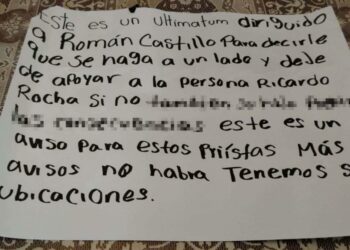 Este es un ultimatum dirigudo
a Román Castillo Para decirle
que se haga a un lado y deJe
de apoyar a la persona Ricardo
Rocha Si no
este es un
aviso Para estos Priístas Más
avisos no habra Tenemos s
ubicaciones.